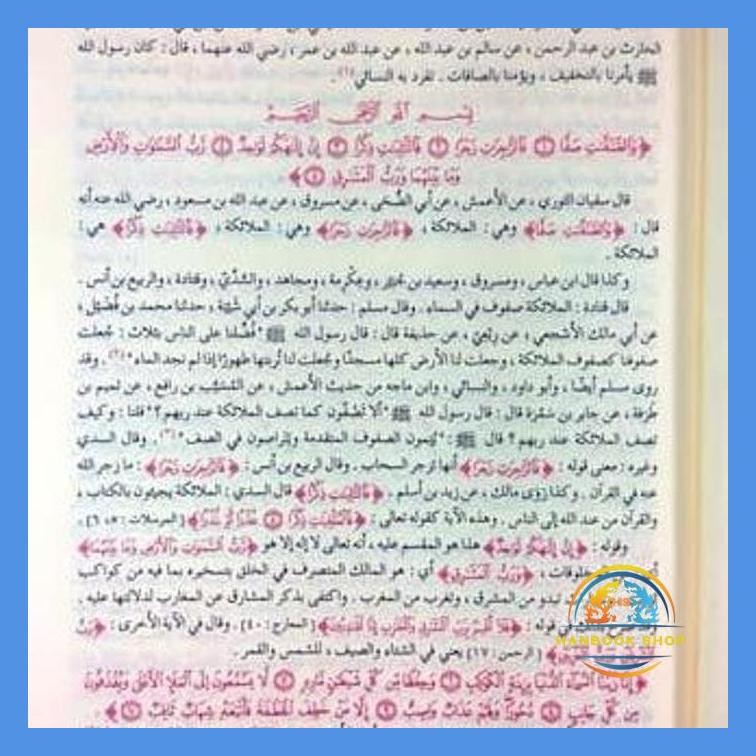 الحارث بن عبد الرحمن ، عن سالم بن عبد الله ، عن عبد الله بن عمر ، رضي الله عنهما ، قال : كان رسول الله
ﷺ يأمرنا بالتخفيف ، ويؤمنا بالصافات . تفرد به النسائي(١) .
بسم الله الرحمن الرحيم
﴿ وَالصَّافَّاتِ صَفًّا ١ فَالزَّاجِرَاتِ زَجْرًا ٢ فَالتَّالِيَاتِ ذِكْرًا ٣ إِنَّ إِلَهَكُمْ لَوَاحِدٌ ٤ رَبُّ السَّمَوَاتِ وَالْأَرْضِ
وَمَا بَيْنَهُمَا وَرَبُّ الْمَشَارِقِ ٥ ﴾
قال سفيان الثوري ، عن الأعمش ، عن أبي الضحى ، عن مسروق ، عن عبد الله بن مسعود ، رضي الله عنه أنه
قال : ﴿ وَالصَّافَّاتِ صَفًّا ﴾ وهي : الملائكة ، ﴿ فَالزَّاجِرَاتِ زَجْرًا ﴾ وهي : الملائكة ، ﴿ فَالتَّالِيَاتِ ذِكْرًا ﴾ هي :
الملائكة .
وكذا قال ابن عباس ، ومسروق ، وسعيد بن جبير ، وعكرمة ، ومجاهد ، والسُّدِّيّ ، وقتادة ، والربيع بن أنس .
قال قتادة : الملائكة صفوف في السماء . وقال مسلم : حدثنا أبو بكر بن أبي شيبة ، حدثنا محمد بن فضيل ،
عن أبي مالك الأشجعي ، عن رِبْعيّ ، عن حذيفة قال : قال رسول الله ﷺ "فُضِّلنا على الناس بثلاث : جُعلت
صفوفنا كصفوف الملائكة ، وجعلت لنا الأرض كلها مسجدًا وجُعلت لنا تُربتها طهورًا إذا لم نجد الماء"(٢) . وقد
روى مسلم أيضًا ، وأبو داود ، والنسائي ، وابن ماجه من حديث الأعمش ، عن المُسَيَّب بن رافع ، عن تميم بن
طرفة ، عن جابر بن سَمُرة قال : قال رسول الله ﷺ "ألا تَصُفّون كما تصف الملائكة عند ربهم ؟" قلنا : وكيف
تصف الملائكة عند ربهم ؟ قال ﷺ : "يُتِمون الصفوف المتقدمة ويتراصون في الصف"(٣) . وقال السدي
وغيره : معنى قوله : ﴿ فَالزَّاجِرَاتِ زَجْرًا ﴾ أنها تزجر السحاب . وقال الربيع بن أنس : ﴿ فَالزَّاجِرَاتِ زَجْرًا ﴾ : ما زجر الله
عنه في القرآن . وكذا رَوَى مالك ، عن زيد بن أسلم . ﴿ فَالتَّالِيَاتِ ذِكْرًا ﴾ قال السدي : الملائكة يجيئون بالكتاب ،
والقرآن من عند الله إلى الناس . وهذه الآية كقوله تعالى : ﴿ فَالْمُلْقِيَاتِ ذِكْرًا ٥ عُذْرًا أَوْ نُذْرًا ﴾ [ المرسلات : ٥ ، ٦ ] .
وقوله : ﴿ إِنَّ إِلَهَكُمْ لَوَاحِدٌ ﴾ هذا هو المقسم عليه ، أنه تعالى لا إله إلا هو ﴿ رَبُّ السَّمَوَاتِ وَالْأَرْضِ وَمَا بَيْنَهُمَا ﴾
المخلوقات ، ﴿ وَرَبُّ الْمَشَارِقِ ﴾ أي : هو المالك المتصرف في الخلق بتسخيره بما فيه من كواكب
تبدو من المشرق ، وتغرب من المغرب . واكتفى بذكر المشارق عن المغارب لدلالتها عليه .
في قوله : ﴿ فَلَا أُقْسِمُ بِرَبِّ الْمَشَارِقِ وَالْمَغَارِبِ إِنَّا لَقَادِرُونَ ﴾ [ المعارج : ٤٠ ] . وقال في الآية الأخرى : ﴿ رَبُّ
[ الرحمن : ١٧ ] يعني في الشتاء والصيف ، للشمس والقمر .
﴿ إِنَّا زَيَّنَّا السَّمَاءَ الدُّنْيَا بِزِينَةٍ الْكَوَاكِبِ ٦ وَحِفْظًا مِنْ كُلِّ شَيْطَانٍ مَارِدٍ ٧ لَا يَسَّمَّعُونَ إِلَى الْمَلَإِ الْأَعْلَى وَيُقْذَفُونَ
مِنْ كُلِّ جَانِبٍ ٨ دُحُورًا وَلَهُمْ عَذَابٌ وَاصِبٌ ٩ إِلَّا مَنْ خَطِفَ الْخَطْفَةَ فَأَتْبَعَهُ شِهَابٌ ثَاقِبٌ ١٠ ﴾
HBS
HANBOOK SHOP